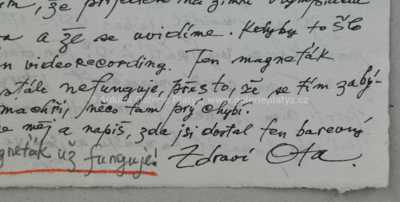 ím, že přijedeš na zimní olympiádu
a a že se uvidíme. Kdyby to šlo
n videorecording. Ten magneťák
stále nefunguje, přesto, že se tím zabý-
machři, něco tam prý chybí.
e měj a napiš, zda jsi dostal ten barevný
gneťák už funguje! Zdraví Ota.